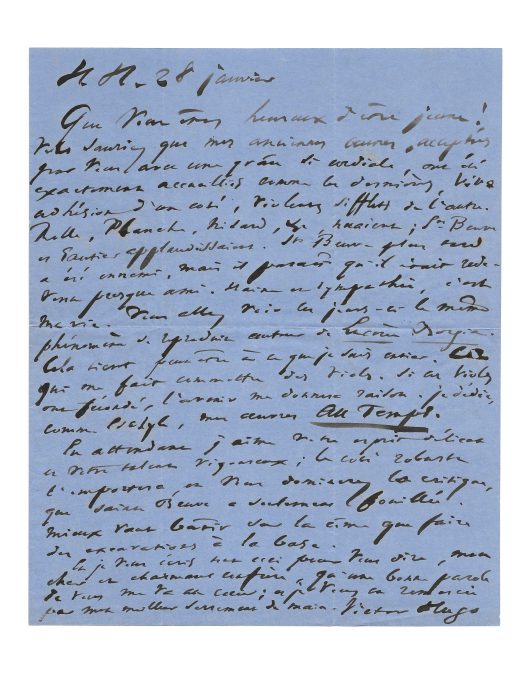 H H. 28 janvier
Que vous êtes heureux d'être jeune!
Vous sauriez que mes anciennes œuvres, acceptées
par vous avec une grâce si cordiale, ont été
exactement accueillies comme les dernières, vive
adhésion d'un côté, violents sifflets de l'autre.
Planche, Nisard, haïssaient; Ste Beuve
et Gautier applaudissaient. Ste Beuve plus tard
a été ennemi, mais il paraît qu'il était rede-
venu presque ami. Haine et sympathie, c'est
ma vie. Vous allez voir ces jours-ci le même
phénomène se reproduire autour de
Cela tient peut-être à ce que je suis entier.
qui me fait commettre des viols. Si ces viols
ont fécondé, l'avenir me donnera raison. je dédie,
comme Eschyle, mes œuvres Au Temps.
En attendant j'aime votre esprit délicat
et votre talent vigoureux; le côté robuste
l'emportera, et vous dominerez la critique,
que Sainte Beuve a seulement fouillée.
mieux vaut bâtir sur la cime que faire
des excavations à la base.
je vous écris ceci pour vous dire, mon
cher et charmant confrère, qu'une bonne parole
de vous me va au cœur; et je vous en remercie
par mon meilleur serrement de main. Victor Hugo